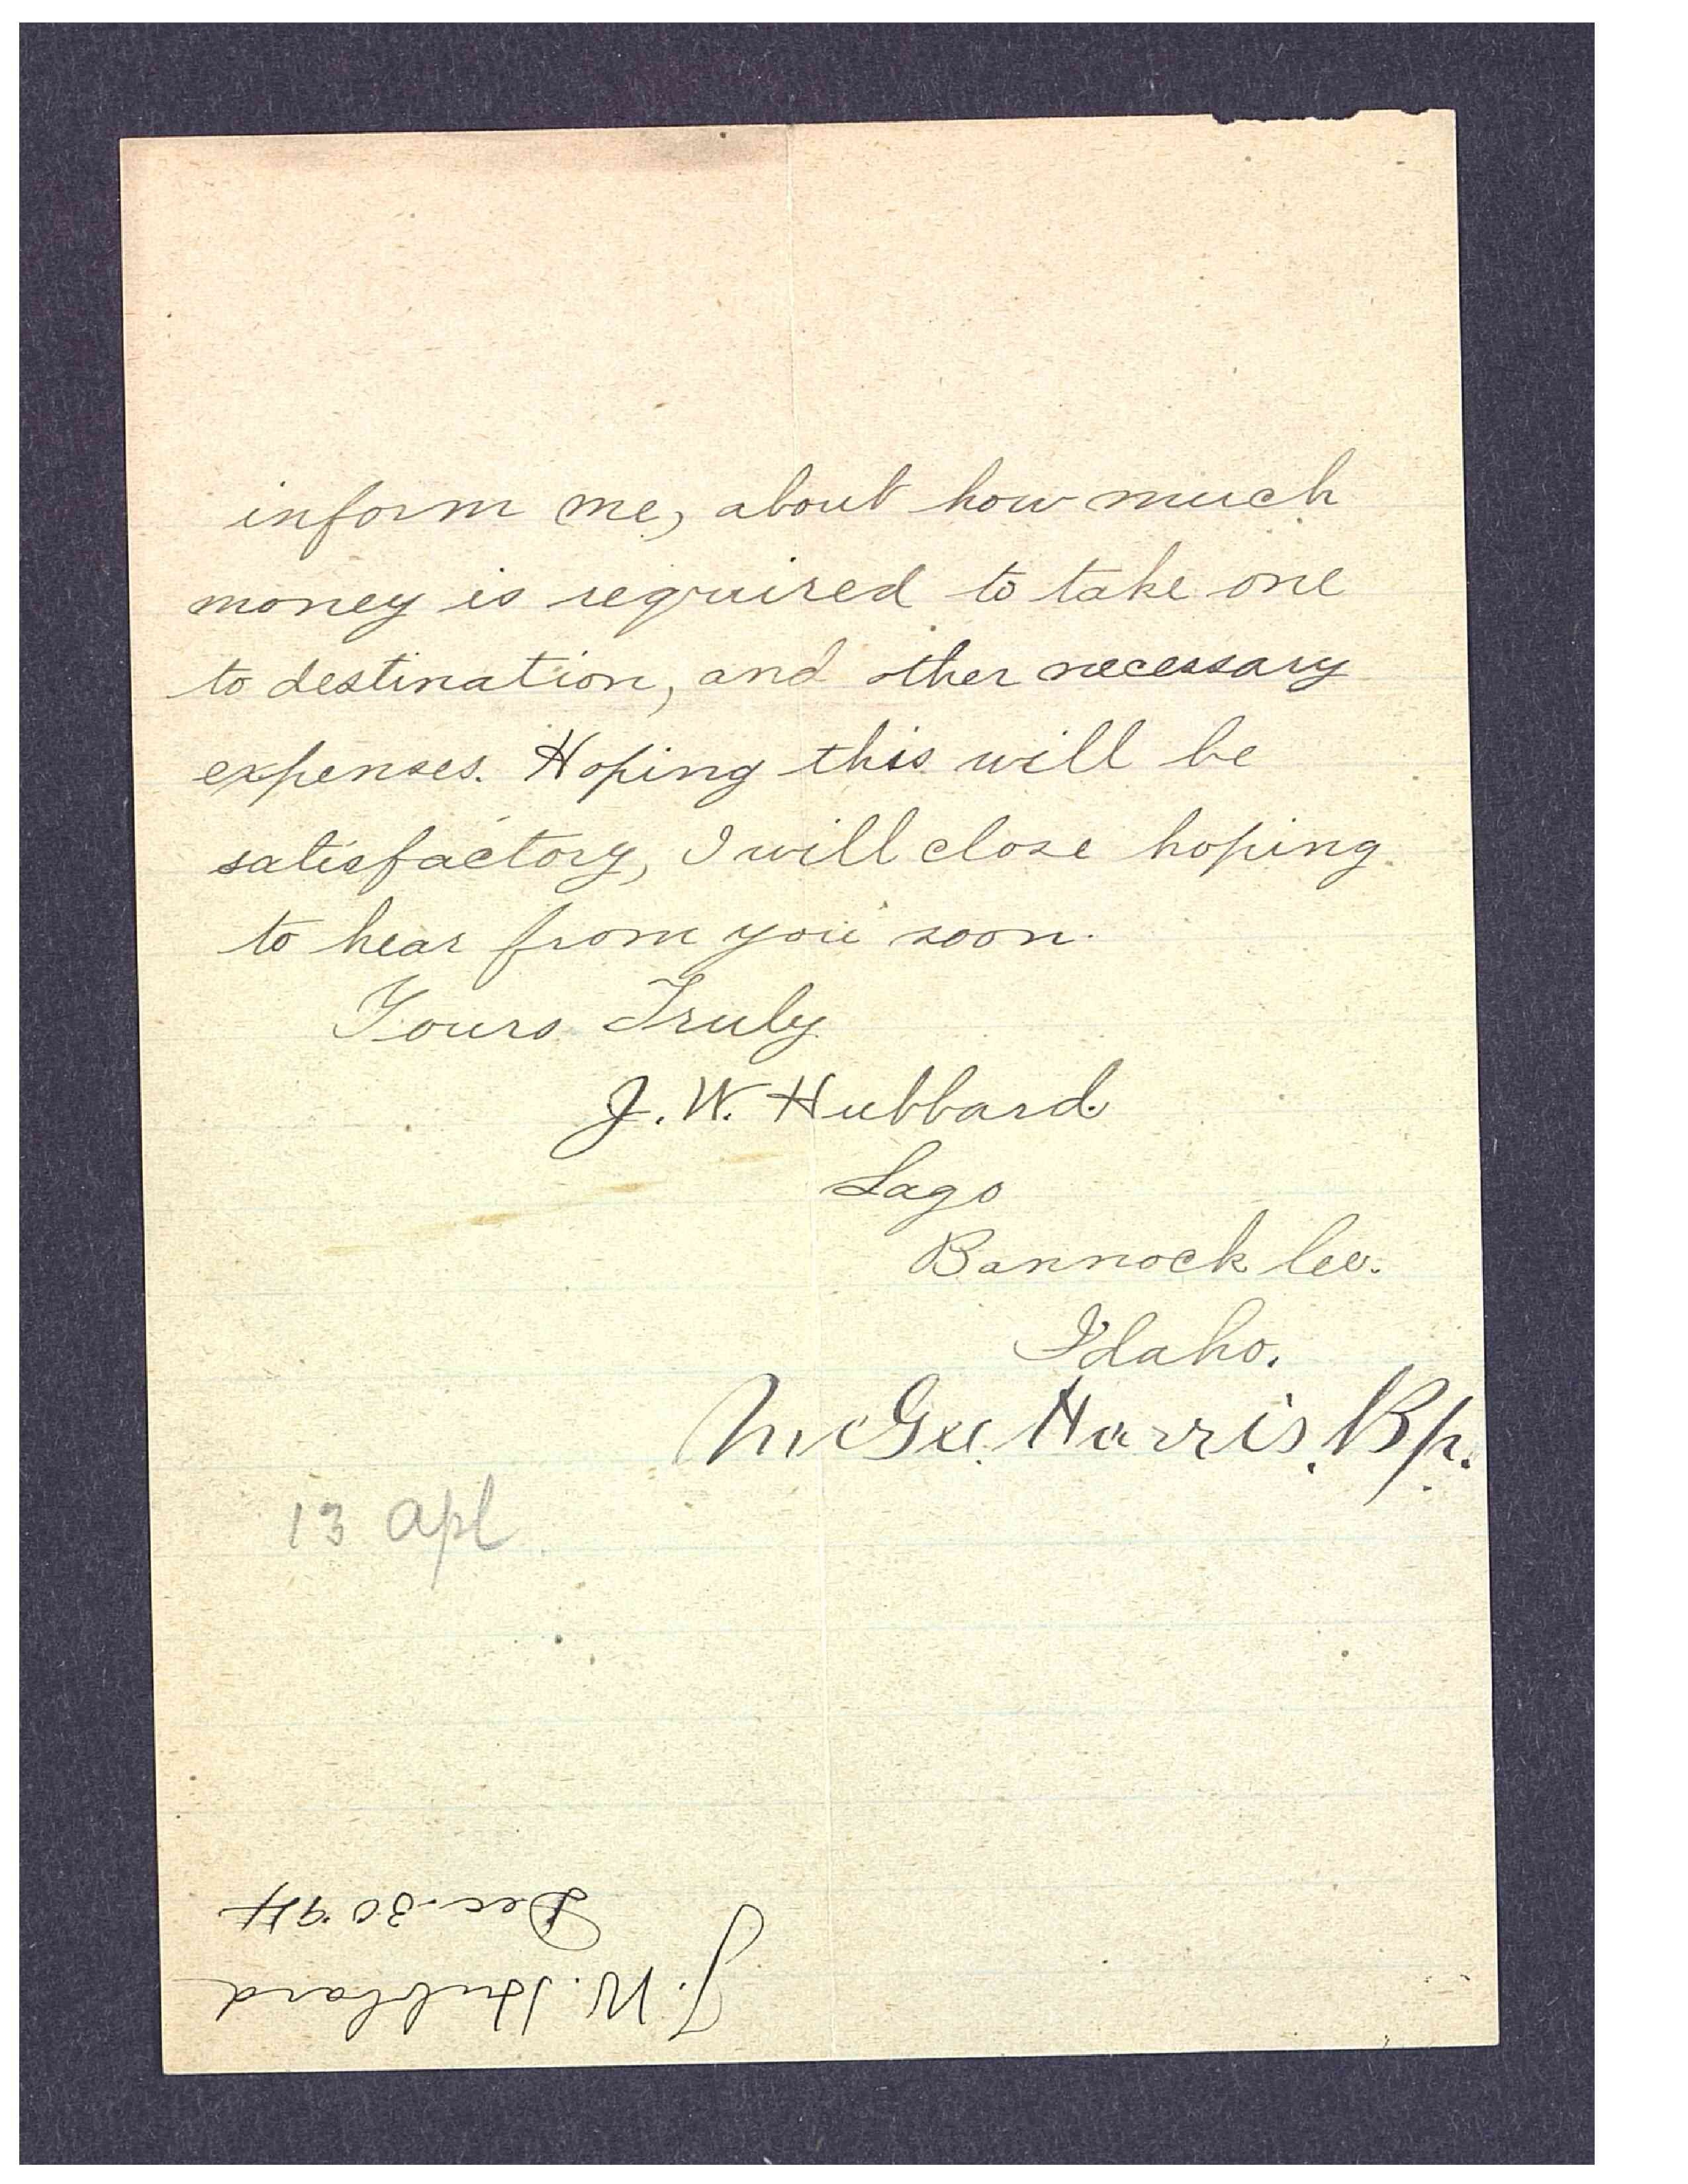 inform me, about how much
money is required to take one
to destination, and other necessary
expenses. Hoping this will be
satisfactory, I will close hoping
to hear from you soon.
Yours Truly
J. W. Hubbard.
Lago
Bannock Co.
Idaho.
McGee Harris. Bp.
13 apl
J. W. Hubbard
Dec. 30 94